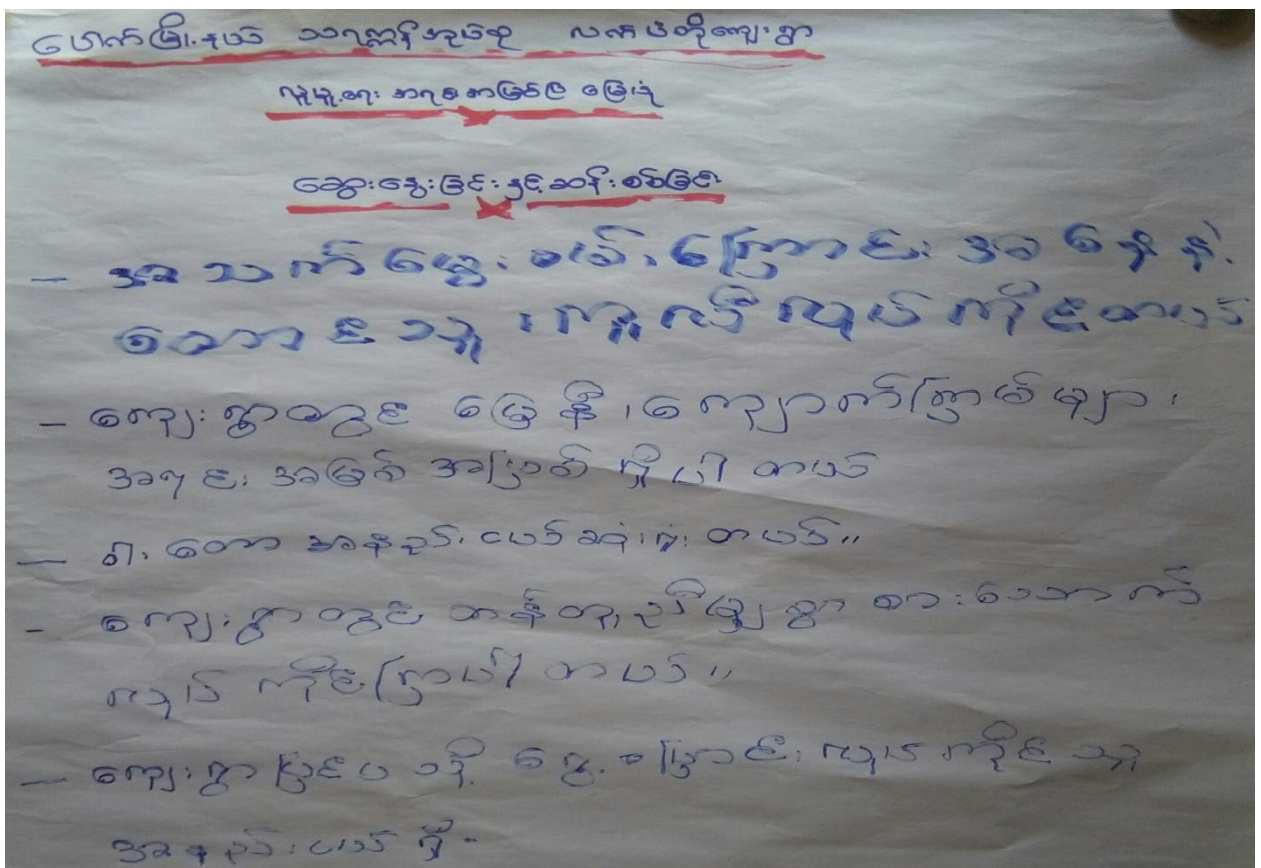 ပေါက်မြို့နယ် သရက္ကန်အုပ်စု လက်ပံတိုကျေးရွာ
လူမှု့ရေး အရင်းအမြစ်ပြ မြေပုံ
ဆွေးနွေးခြင်းနှင့်ဆန်းစစ်ခြင်း
- အသက်မွေးဝမ်းကျောင်း အနေနဲ့
တောင်သူ၊ကူလီလုပ်ကိုင်တယ်
- ကျေးရွာတွင် မြေနီ၊ကျောက်ကြမ်းများ၊
အရင်းအမြစ်အဖြစ် ရှိပါတယ်
- ဝါးတော အနည်းငယ်ဆုံးရှုံးတယ်။
- ကျေးရွာတွင် တန်တူညီမျှစွာ စားသောက်
လုပ်ကိုင်ကြပါတယ်။
- ကျေးရွာပြင်ပသို့ ရွှေ့ပြောင်းလုပ်ကိုင်သူ
အနည်းငယ်ရှိ-